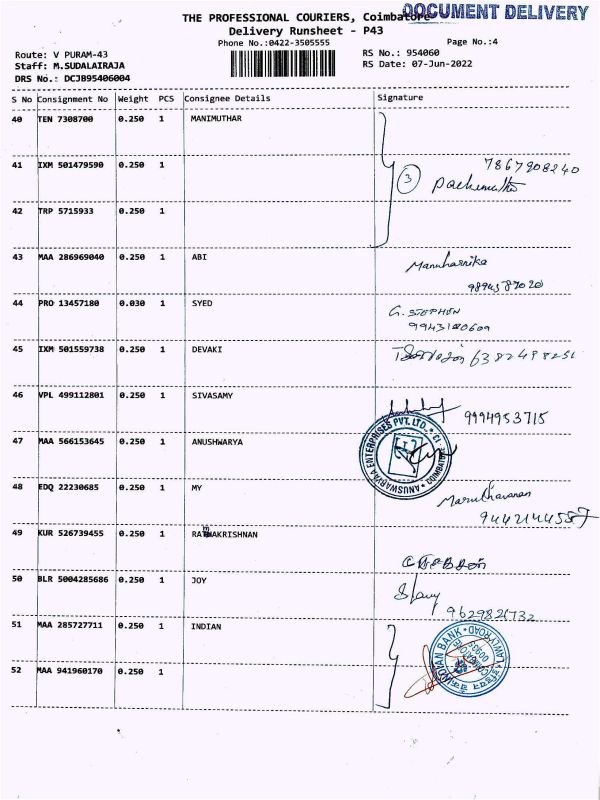 THE PROFESSIONAL COURIERS, Coimbatore
DOCUMENT DELIVERY
Delivery Runsheet - P43
Phone No.:0422-3505555
Page No.:4
Route: V PURAM-43
RS No.: 954060
Staff: M.SUDALAIRAJA
RS Date: 07-Jun-2022
DRS No.: DCJB95406004
S No Consignment No Weight PCS Consignee Details Signature
40 TEN 7308700 0.250 1 MANIMUTHAR
41 IXM 501479590 0.250 1 3 7867908240
Pachimuthu
42 TRP 5715933 0.250 1
43 MAA 286969040 0.250 1 ABI Manuharnika
9894587020
44 PRO 13457180 0.030 1 SYED G. STEPHEN
9943180609
45 IXM 501559738 0.250 1 DEVAKI
46 VPL 499112801 0.250 1 SIVASAMY 9994953715
47 MAA 566153645 0.250 1 ANUSHWARYA
ANUSWARYAA ENTERPRISES PVT. LTD., COIMBATORE
48 EDQ 22230685 0.250 1 MY
9442144587
49 KUR 526739455 0.250 1
50 BLR 5004285686 0.250 1 JOY
9629821732
51 MAA 285727711 0.250 1 INDIAN
INDIAN BANK LAWLY ROAD
52 MAA 941960170 0.250 1